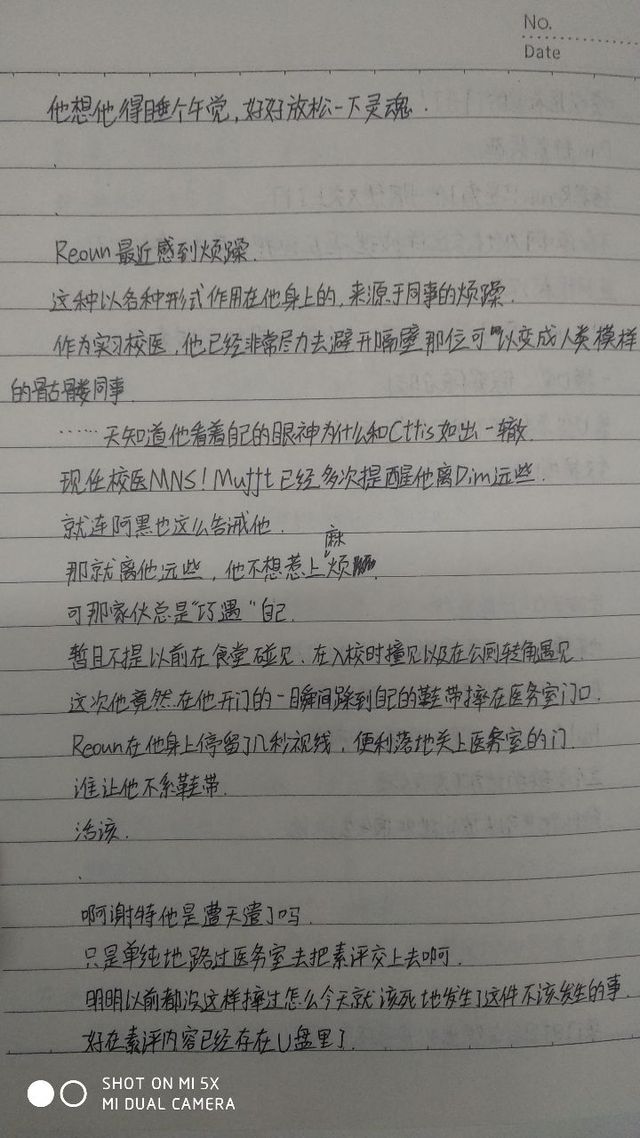 No.
Date
他想他得睡个午觉,好好放松一下灵魂.
Reoun最近感到烦躁.
这种以各种形式作用在他身上的,来源于同事的烦躁.
作为实习校医,他已经非常尽力去避开隔壁那位可以变成人类模样
的骷髅同事.
……天知道他看着自己的眼神为什么和Cttis如出一辙.
现任校医MNS!Mufft已经多次提醒他离Dim远些.
就连阿黑也这么告诫他.
那就离他远些,他不想惹上麻烦.
可那家伙总是“巧遇”自己.
暂且不提以前在食堂碰见、在入校时撞见以及在公厕转角遇见.
这次他竟然在他开门的一瞬间踩到自己的鞋带摔在医务室门口.
Reoun在他身上停留了几秒视线,便利落地关上医务室的门.
谁让他不系鞋带.
活该.
啊谢特他是遭天遣了吗.
只是单纯地路过医务室去把素评交上去啊.
明明以前都没这样摔过怎么今天就该死地发生了这件不该发生的事.
好在素评内容已经存在U盘里了.
SHOT ON MI 5X
MI DUAL CAMERA